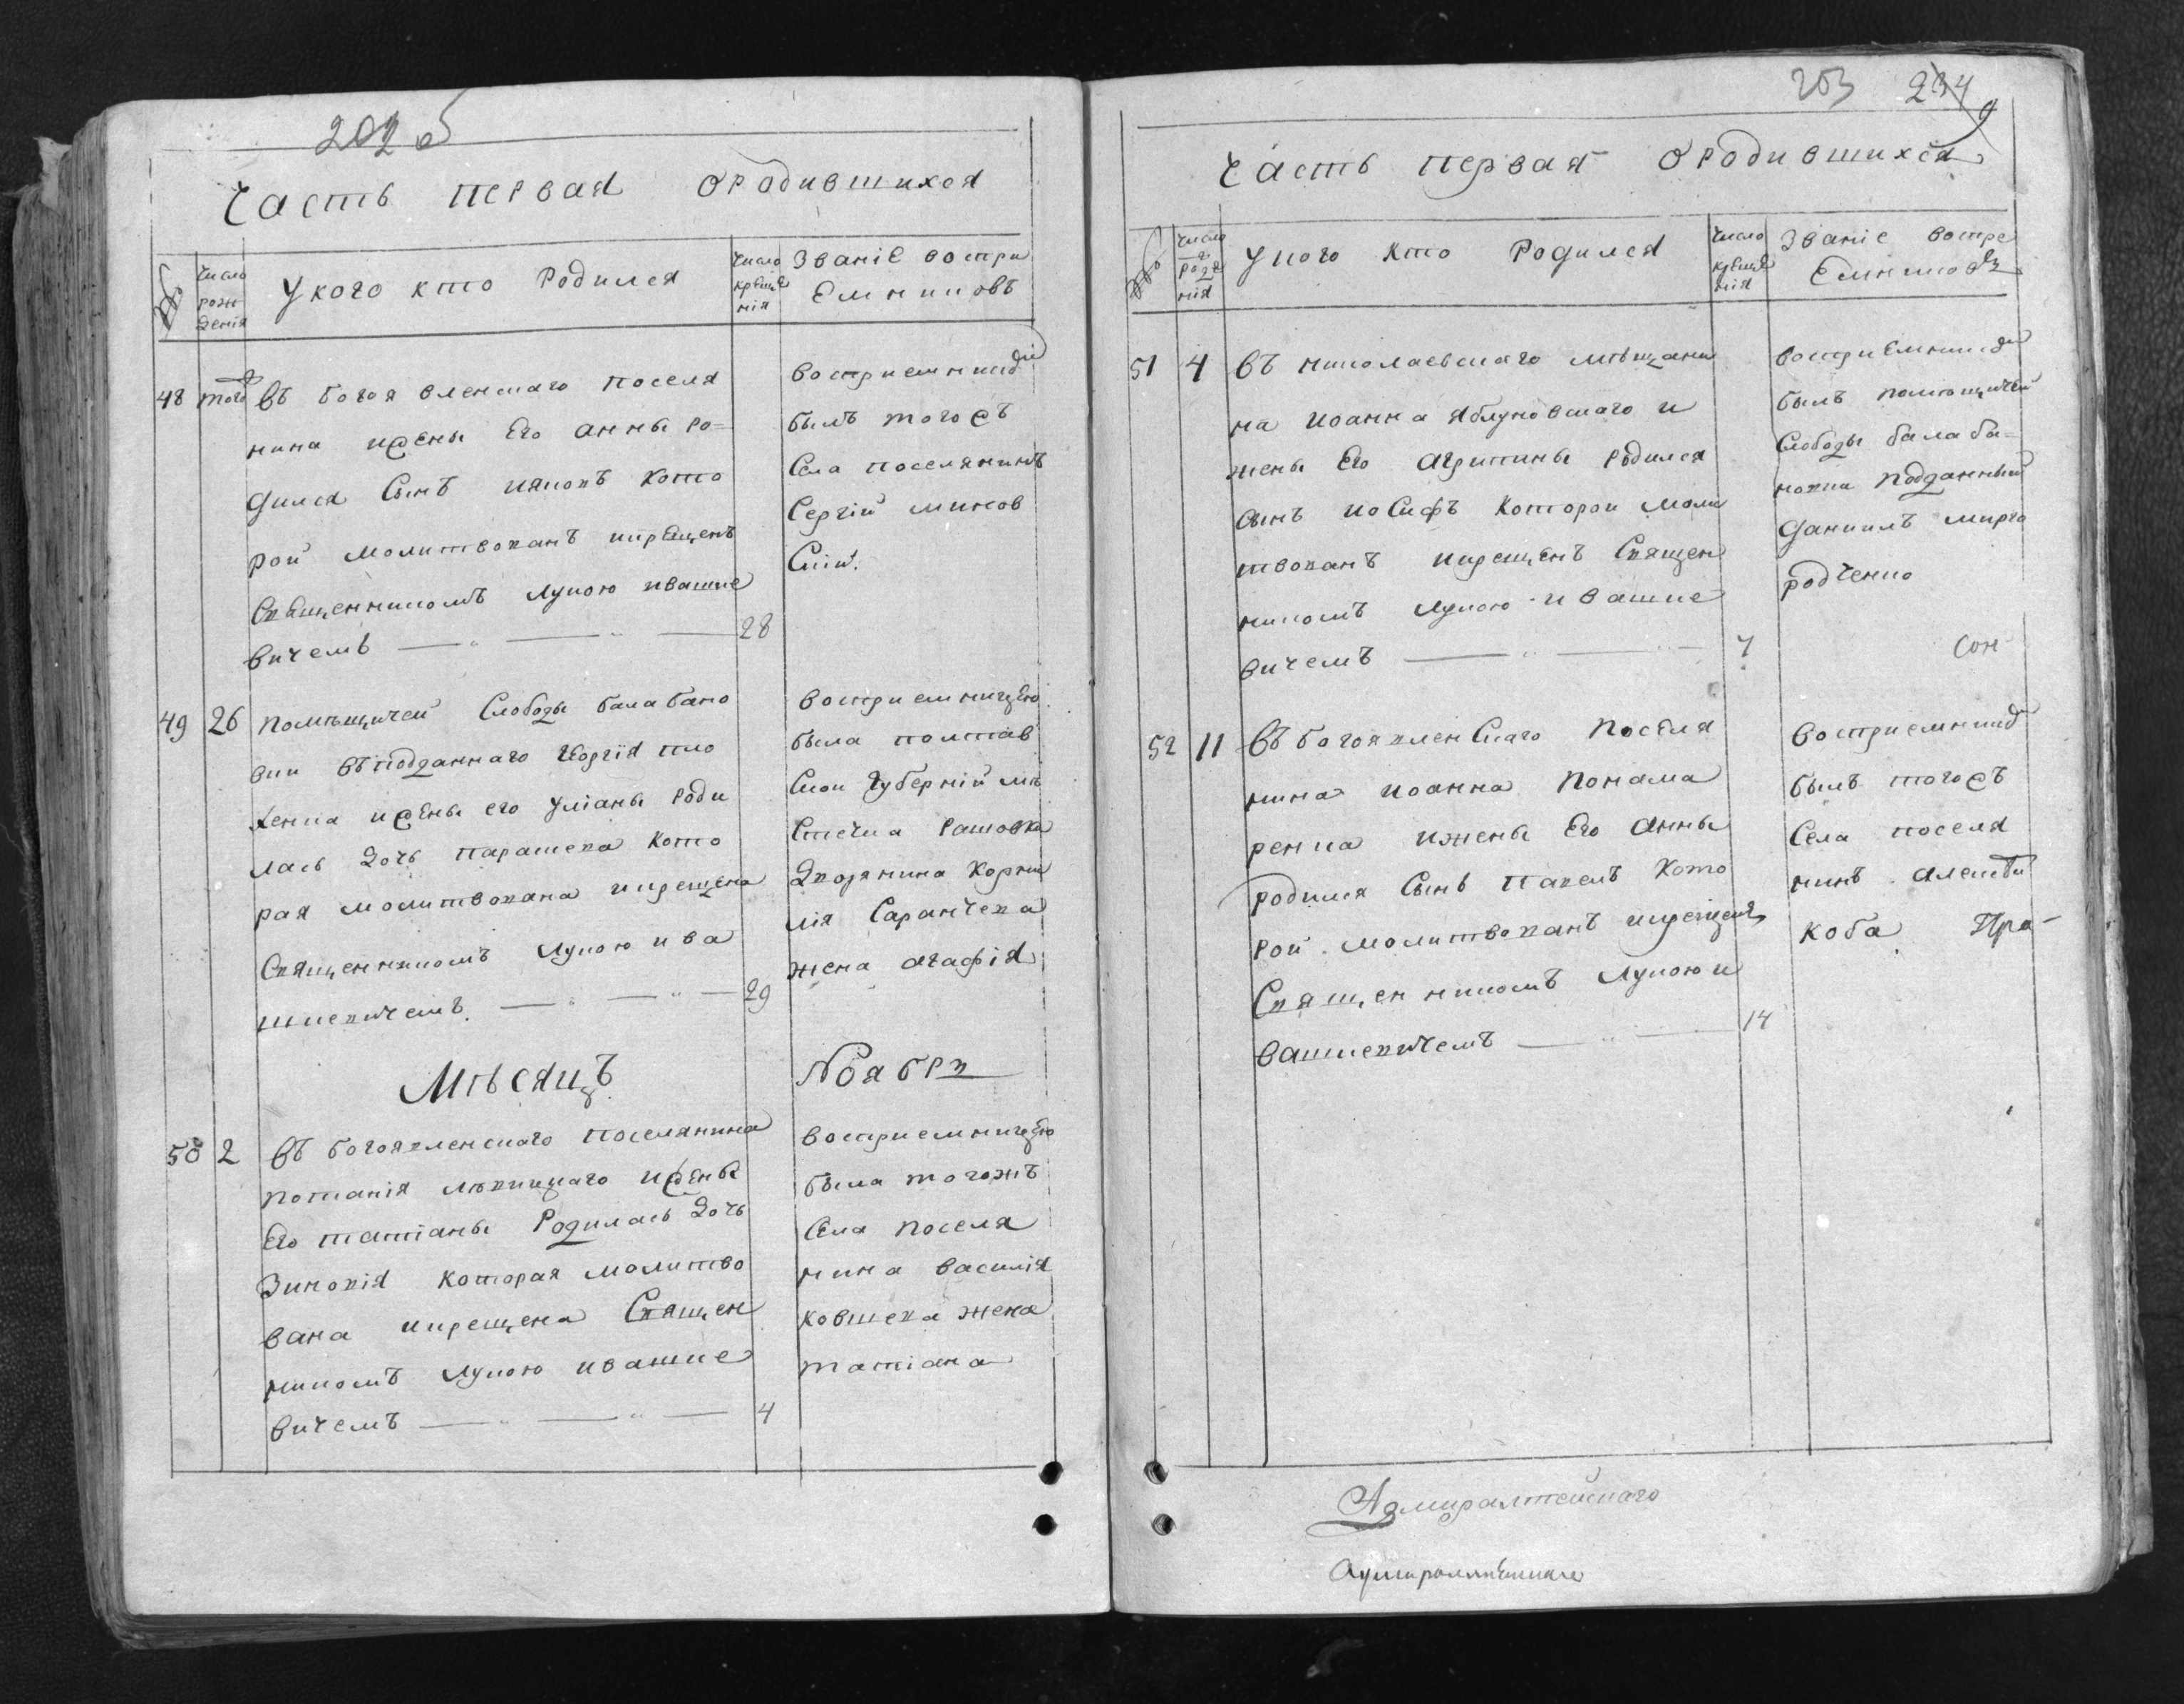 202 об
Часть первая ородившихся
№
число рож денія
Укого кто Родился
Число крѣще нія
Званіе востри Емниковъ
48 того въ богоявленскаго поселя
нина ижены Его анны ро=
дился Сынъ иаковъ кото
рой молитвованъ икрещенъ
Священникомъ лукою ивашке
вичемъ — — — 28
восприемникомъ
былъ тогожъ
Села поселянинъ
Сергій минков
Скій.
49 26 помѣщичей Слободы балабано
вки въподданнаго Георгія
женка ижены его уліаны роди
лась Дочь параскева кото
рая молитвована икрещена
Священникомъ лукою ива
шкевичемъ. — — — 29
восприемницею
была полтав
Ской губерніи мѣ
Стечка рашовка
Дворянина Корни
лія Саранчева
жена агафія
Мѣсяцъ Ноябрь
50 2 въ богоявленскаго поселянина
потапія ижены
Его татіаны Родилась Дочь
Зиновія которая молитво
вана икрещена Священ
никомъ лукою ивашке
вичемъ — — — 4
восприемницею
была тогожъ
Села поселя
нина василія
ковшева жена
татіана
203 234
Часть первая ородившихся
№
число рожде нія
Укого кто Родился
Число крѣще нія
Званіе востре Емниковъ
51 4 въ николаевскаго мѣщани
на иоанна Яблуновскаго и
жены Его агрипины родился
сынъ иосифъ которой моли
твованъ икрещенъ Священ
никомъ лукою ивашке
вичемъ — — 7
восприемникомъ
былъ помѣщичей
Слободы балаба=
новки подданный
даніилъ мирго
родченко
сон
52 11 въ богоявленскаго поселя
нина иоанна понама
ренка ижены Его анны
родился Сынъ павелъ кото
рой молитвованъ икрещенъ
Священникомъ лукою и
вашкевичемъ — — 14
восприемникомъ
былъ тогожъ
Села поселя
нинъ алексѣй
коба Пра-
Адмиралтейскаго
Адмиралтейскаго